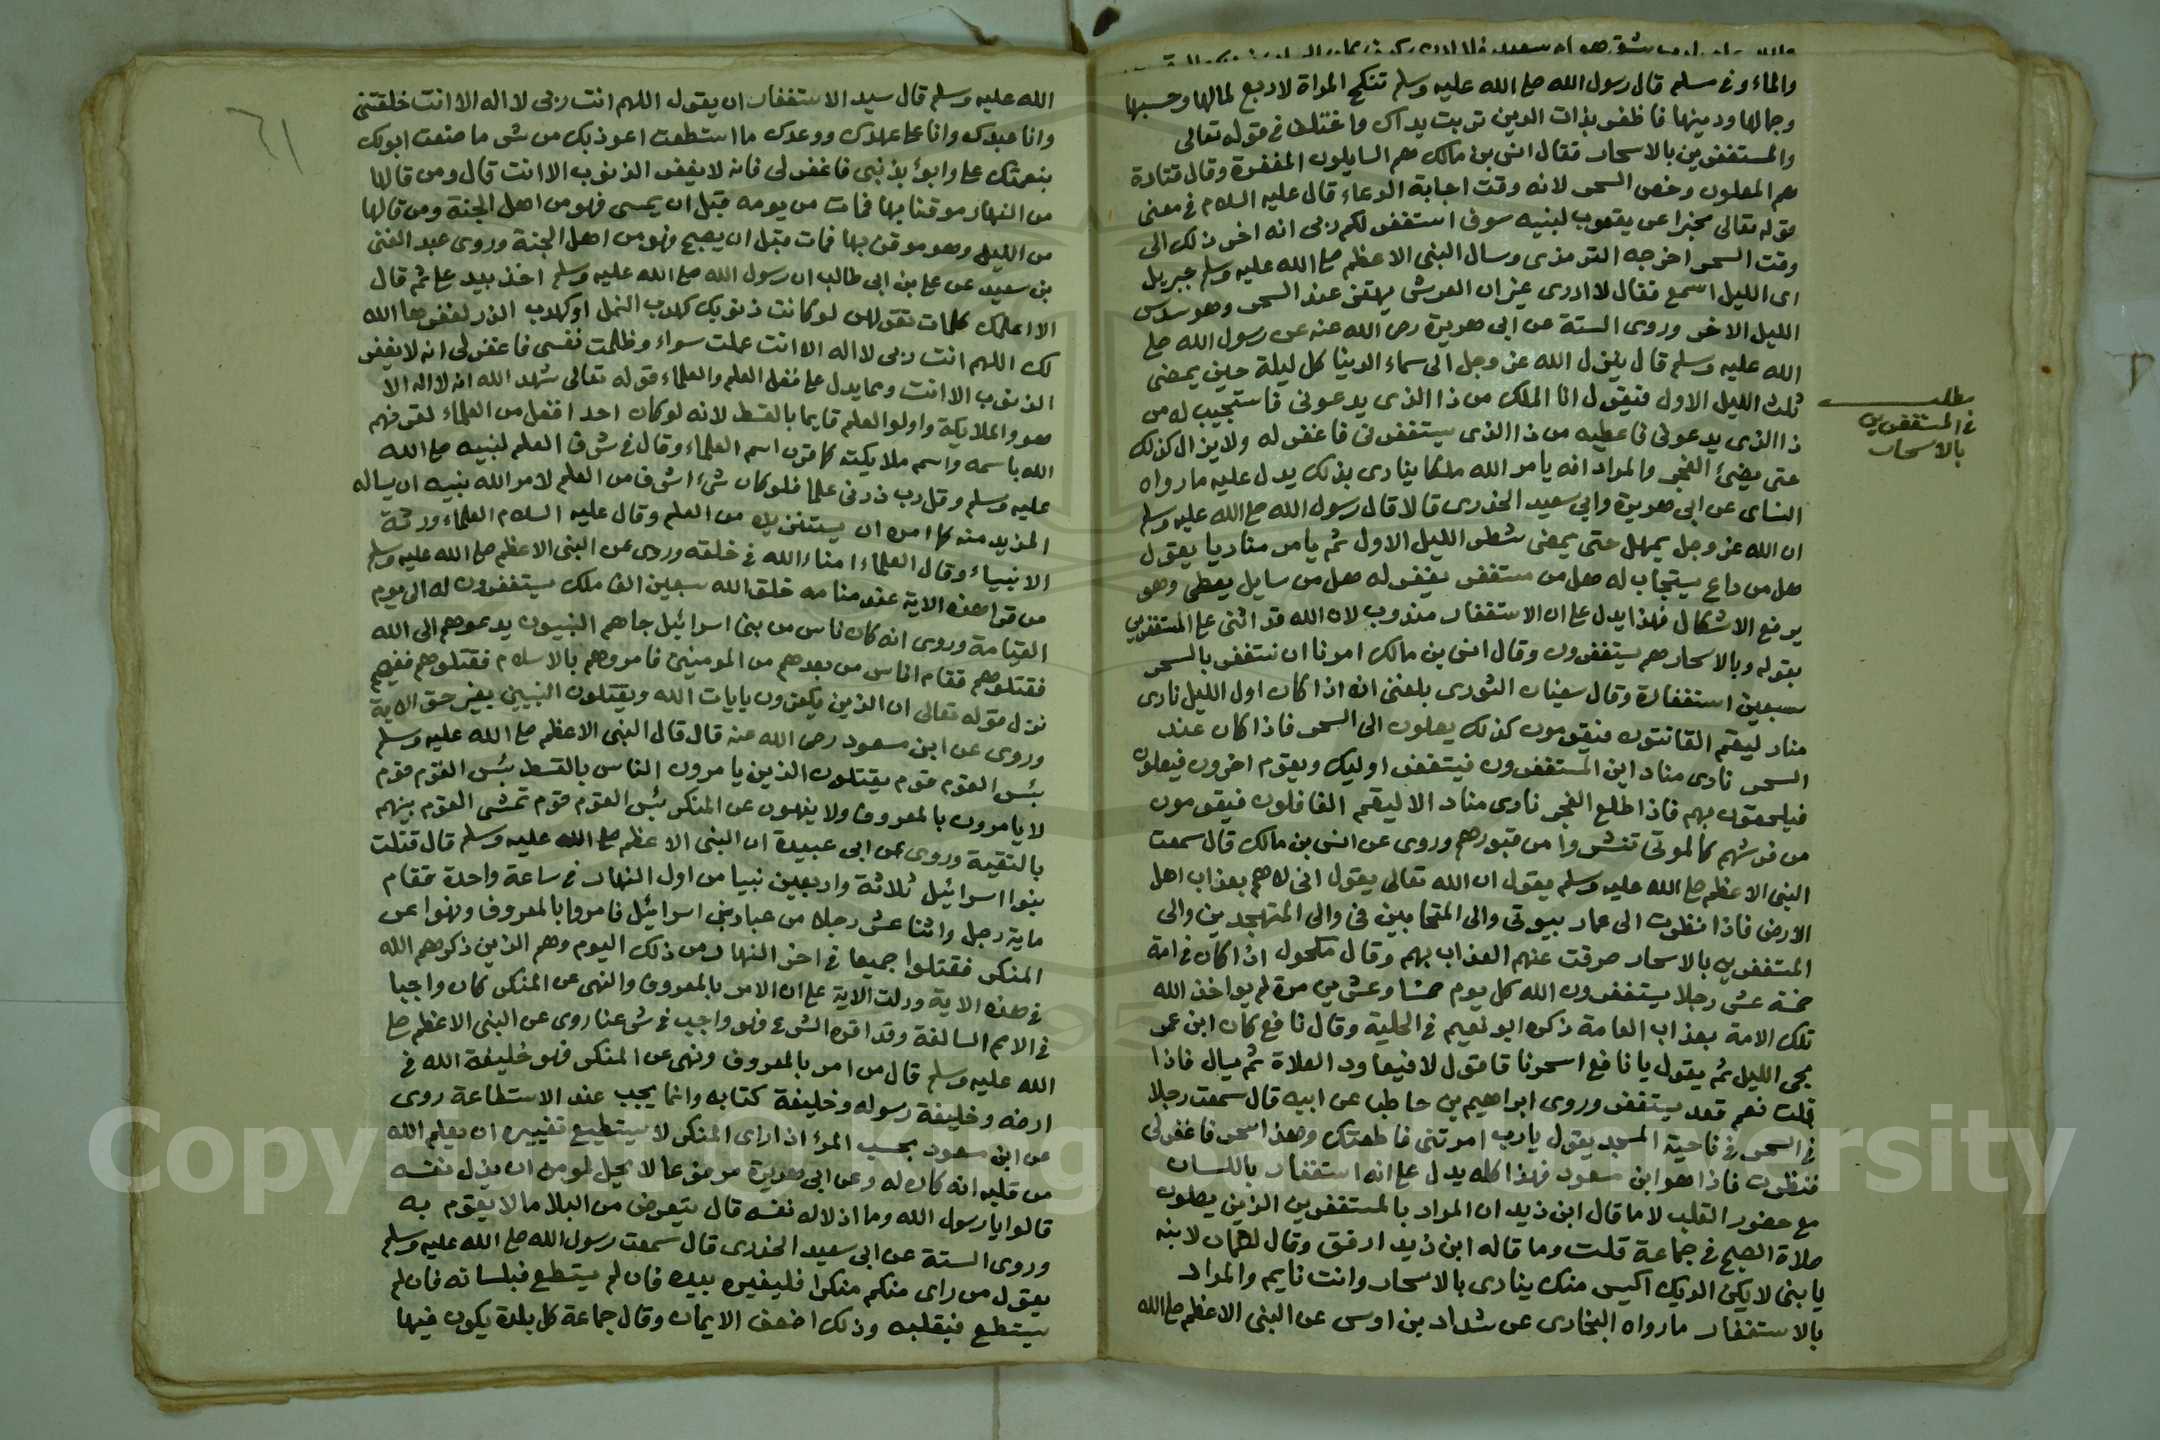 والماء وفي مسلم قال رسول الله صلع الله عليه وسلم تنكح المراة لاربع لمالها وحسبها
وجمالها ودينها فاظفر بذات الدين تربت يداك واختلف في قوله تعالى
والمستغفرين بالاسحار فقال انس بن مالك هم السايلون المغفرة وقال قتادة
هم المصلون وخص السحر لانه وقت اجابة الدعاء قال عليه السلام في معنى
قوله تعالى مخبرا عن يعقوب لبنيه سوف استغفر لكم ربى انه اخر ذلك الى
وقت السحر اخرجه الترمذى وسال النبى الاعظم صلع الله عليه وسلم جبريل
اى الليل اسمع فقال لا ادرى غير ان العرش يهتز عند السحر وهو سدس
الليل الاخر وروى الستة عن ابى هريرة رضى الله عنه عن رسول الله صلع
الله عليه وسلم قال ينزل الله عز وجل الى سماء الدنيا كل ليلة حين يمضى
ثلث الليل الاول فيقول انا الملك من ذا الذى يدعونى فاستجيب له من
ذا الذى يدعونى فاعطيه من ذا الذى يستغفرنى فاغفر له ولا يزال كذلك
حتى يضئ الفجر والمراد انه يامر الله ملكا ينادى بذلك يدل عليه ما رواه
النساى عن ابى هريرة وابى سعيد الخدرى قالا قال رسول الله صلع الله عليه وسلم
ان الله عز وجل يمهل حتى يمضى شطر الليل الاول ثم يامر مناديا يقول
هل من داع يستجاب له هل من مستغفر يغفر له هل من سايل يعطى وهو
يرفع الاشكال فهذا يدل على ان الاستغفار مندوب لان الله قد اثنى على المستغفرين
بقوله وبالاسحار هم يستغفرون وقال انس بن مالك امرنا ان نستغفر بالسحر
سبعين استغفارة وقال سفيان الثورى بلغنى انه اذا كان اول الليل نادى
مناد ليقم القانتون فيقومون كذلك يصلون الى السحر فاذا كان عند
السحر نادى مناد اين المستغفرون فيستغفر اوليك ويقوم اخرون فيصلون
فيلحقون بهم فاذا طلع الفجر نادى مناد الا ليقم الغافلون فيقومون
من فرشهم كالموتى نشروا من قبورهم وروى عن انس بن مالك قال سمعت
النبى الاعظم صلع الله عليه وسلم يقول ان الله تعالى يقول انى لاهم بعذاب اهل
الارض فاذا نظرت الى عمار بيوتى والى المتحابين فى والى المتهجدين والى
المستغفرين بالاسحار صرفت عنهم العذاب بهم وقال مكحول اذا كان فى امة
خمسة عشر رجلا يستغفرون الله كل يوم خمسا وعشرين مرة لم يواخذ الله
تلك الامة بعذاب العامة ذكره ابو نعيم فى الحلية وقال نافع كان ابن عمر
يحى الليل ثم يقول يا نافع اسحرنا فاقول لا فيعاود الصلاة ثم يسال فاذا
قلت نعم قعد يستغفر وروى ابراهيم بن حاطب عن ابيه قال سمعت رجلا
فى السحر فى ناحية المسجد يقول يارب امرتنى فاطعتك وهذا سحر فاغفر لى
فنظرت فاذا هو ابن مسعود فهذا كله يدل على انه استغفار باللسان
مع حضور القلب لا ما قال ابن زيد ان المراد بالمستغفرين الذين يصلون
صلاة الصبح فى جماعة قلت وما قاله ابن زيد ارفق وقال لقمان لابنه
يا بنى لا يكن الديك اكيس منك ينادى بالاسحار وانت نايم والمراد
بالاستغفار ما رواه البخارى عن شداد بن اوس عن النبى الاعظم صلع الله
مطلب
فى المستغفرين
بالاسحار
٦١
الله عليه وسلم قال سيد الاستغفار ان يقول اللهم انت ربى لا اله الا انت خلقتنى
وانا عبدك وانا على عهدك ووعدك ما استطعت اعوذ بك من شر ما صنعت ابو لك
بنعمتك على وابوء بذنبى فاغفر لى فانه لا يغفر الذنوب الا انت قال ومن قالها
من النهار موقنا بها فمات من يومه قبل ان يمسى فهو من اهل الجنة ومن قالها
من الليل وهو موقن بها فمات قبل ان يصبح فهو من اهل الجنة وروى عبد الغنى
بن سعيد عن على بن ابى طالب ان رسول الله صلع الله عليه وسلم اخذ بيد على ثم قال
الا اعلمك كلمات تقولهن لو كانت ذنوبك كمدب النمل او كمدب الذر لغفرها الله
لك اللهم انت ربى لا اله الا انت عملت سواء وظلمت نفسى فاغفر لى انه لا يغفر
الذنوب الا انت ومما يدل على فضل العلم والعلماء قوله تعالى شهد الله انه لا اله الا
هو والملايكة واولوا العلم قايما بالقسط لانه لو كان احد افضل من العلماء لقرنهم
الله باسمه واسم ملايكته كما قرن اسم العلماء وقال فى شرف العلم لنبيه صلع الله
عليه وسلم وقل رب زدنى علما فلو كان شئ اشرف من العلم لامر الله نبيه ان يساله
المزيد منه كما امره ان يستزيده من العلم وقال عليه السلام العلماء ورثة
الانبياء وقال العلماء امناء الله فى خلقه وروى عن النبى الاعظم صلع الله عليه وسلم
من قرا هذه الاية عند منامه خلق الله سبعين الف ملك يستغفرون له الى يوم
القيامة وروى انه كان ناس من بنى اسرائيل جاهم النبيون يدعوهم الى الله
فقتلوهم فقام اناس من بعدهم من المومنين فامروهم بالاسلام فقتلوهم ففيهم
نزل قوله تعالى ان الذين يكفرون بايات الله ويقتلون النبيين بغير حق الاية
وروى عن ابن مسعود رضى الله عنه قال قال النبى الاعظم صلع الله عليه وسلم
بئس القوم قوم يقتلون الذين يامرون الناس بالقسط بئس القوم قوم
لا يامرون بالمعروف ولا ينهون عن المنكر بئس القوم قوم تمشى القوم بينهم
بالتقية وروى عن ابى عبيدة ان النبى الاعظم صلع الله عليه وسلم قال قتلت
بنوا اسرائيل ثلاثة واربعين نبيا من اول النهار فى ساعة واحدة فقام
ماية رجل واثنا عشر رجلا من عباد بنى اسرائيل فامروا بالمعروف ونهوا عن
المنكر فقتلوا جميعا فى اخر النهار من ذلك اليوم وهم الذين ذكرهم الله
فى هذه الاية ودلت الاية على ان الامر بالمعروف والنهى عن المنكر كان واجبا
فى الامم السالفة وقد اقره الشرع فهو واجب فى شرعنا روى عن النبى الاعظم صلع
الله عليه وسلم قال من امر بالمعروف ونهى عن المنكر فهو خليفة الله فى
ارضه وخليفة رسوله وخليفة كتابه وانما يجب عند الاستطاعة روى
عن ابن مسعود بحسب المرؤ اذا راى المنكر لا يستطيع تغييره ان يعلم الله
من قلبه انه كان له وعن ابى هريرة مرفوعا لا يحل لمومن ان يذل نفسه
قالوا يا رسول الله وما اذلاله نفسه قال يتعرض من البلا ما لا يقوم به
وروى الستة عن ابى سعيد الخدرى قال سمعت رسول الله صلع الله عليه وسلم
يقول من راى منكم منكرا فليغيره بيده فان لم يستطع فبلسانه فان لم
يستطع فبقلبه وذلك اضعف الايمان وقال جماعة كل بلدة يكون فيها
Copyright © King Saud University
1957